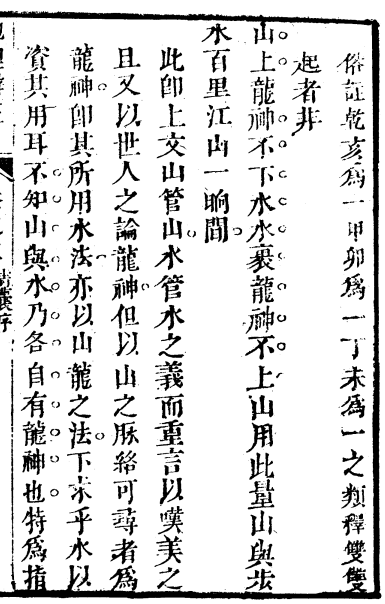 俗註乾亥爲一甲卯爲一丁未爲一之類釋雙雙
起者非
山上龍神不下水水裹龍神不上山用此量山與步
水百里江山一晌間
此卽上文山管山水管水之義而重言以嘆美之
且又以世人之論龍神但以山之脈絡可尋者爲
龍神卽其所用水法亦以山龍之法下求乎水以
資其用耳不知山與水乃各自有龍神也特爲指